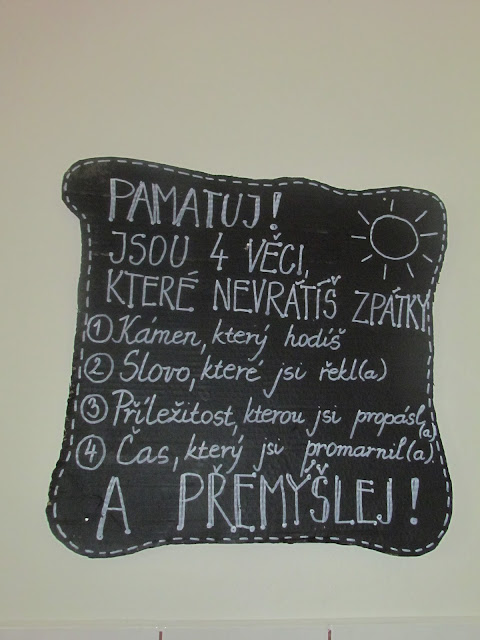 PAMATUJ!
JSOU 4 VĚCI,
KTERÉ NEVRÁTÍŠ ZPÁTKY
1 Kámen, který hodíš
2 Slovo, které jsi řekl(a)
3 Příležitost, kterou jsi propásl(a)
4 Čas, který jsi promarnil(a).
A PŘEMÝŠLEJ!